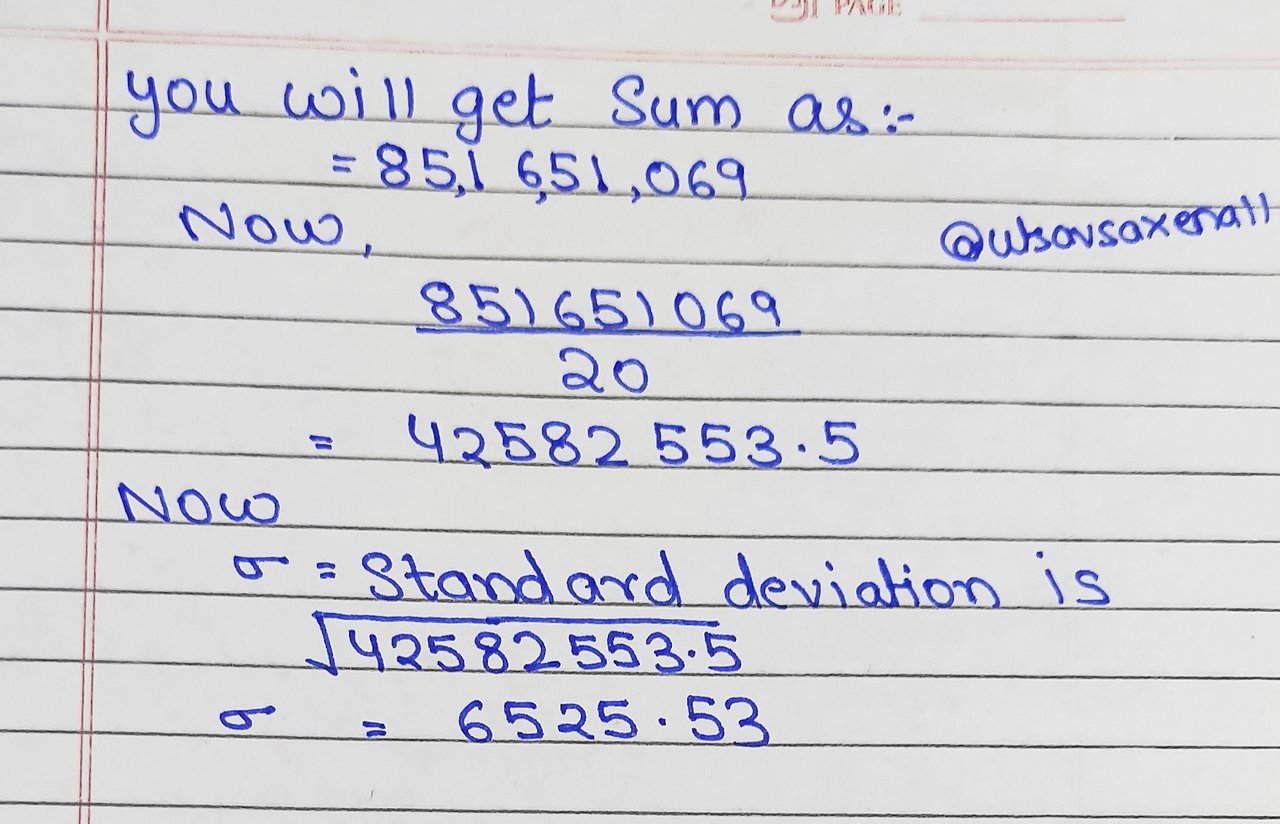 PAGE
you will get Sum as:-
= 85,1 6,51,069
Now,
851651069
20
= 42582 553.5
Now
σ = Standard deviation is
√42582553.5
σ = 6525.53